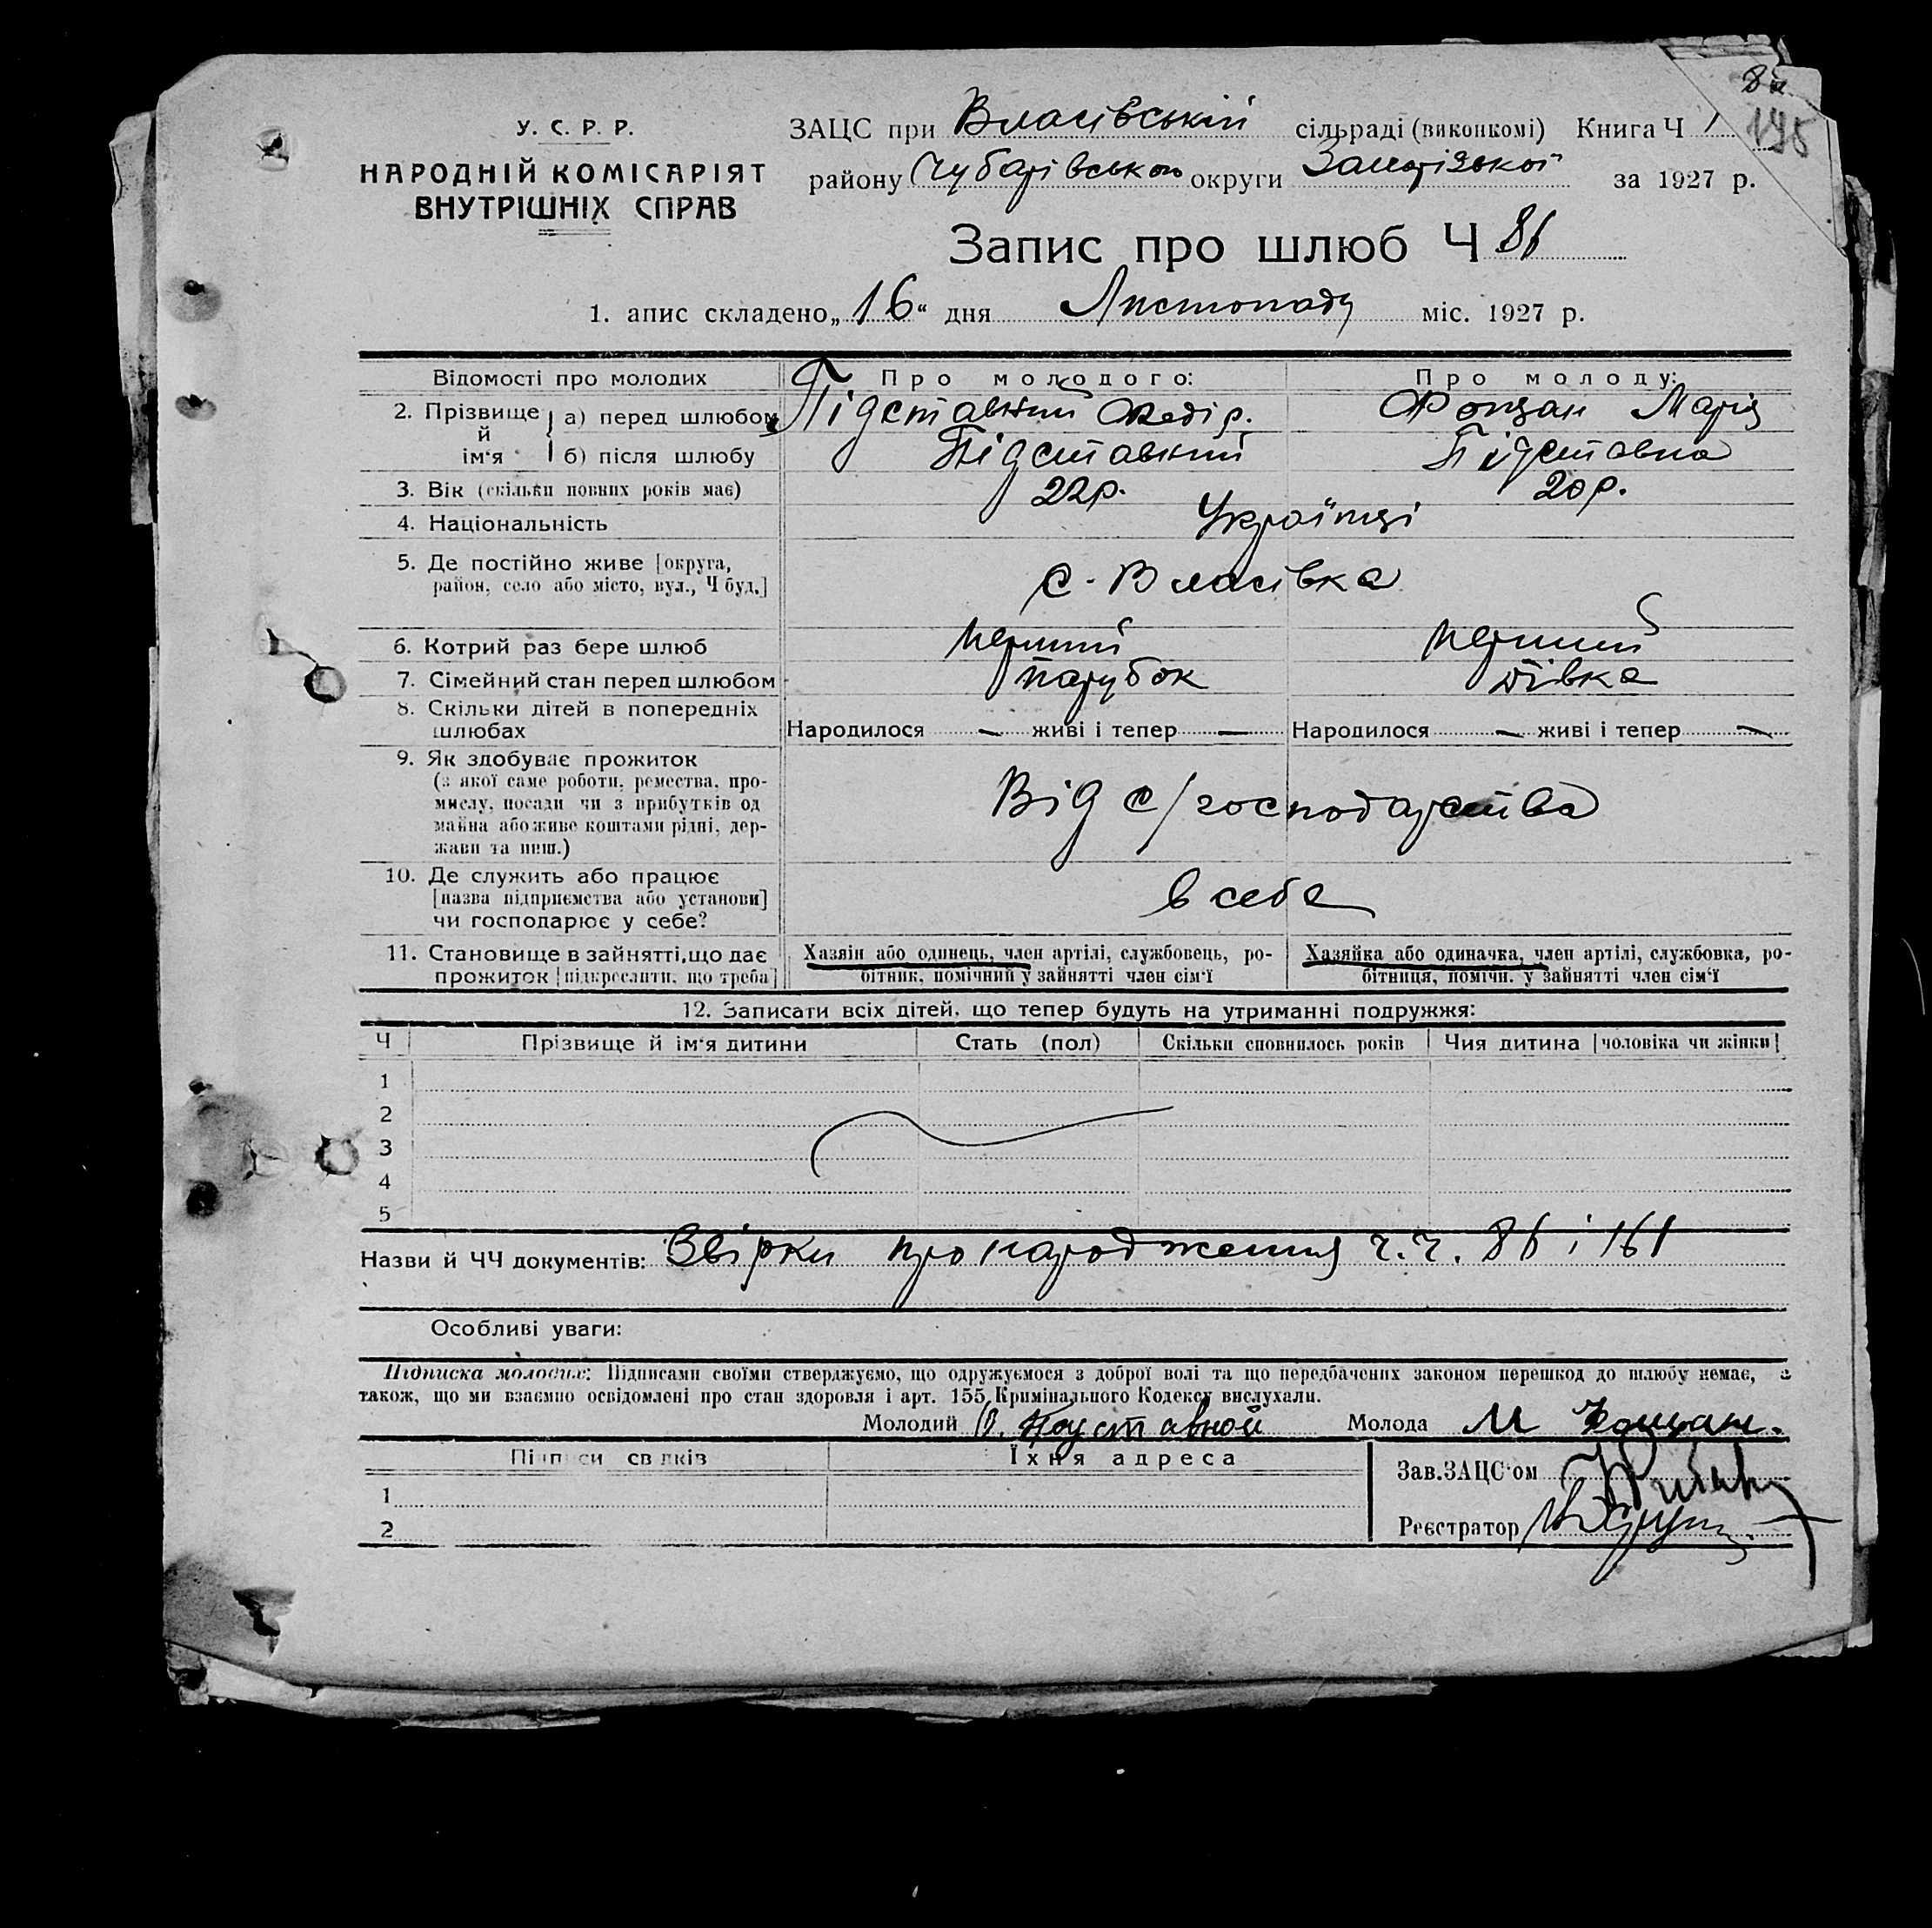 195
У. С. Р. Р.
НАРОДНІЙ КОМІСАРІЯТ
ВНУТРІШНІХ СПРАВ
ЗАЦС при Власівській сільраді (виконкомі) Книга Ч 1
району Чубарівського округи Запорізької за 1927 р.
Запис про шлюб Ч 86
1. апис складено „16“ дня Листопаду міс. 1927 р.
Відомості про молодих Про молодого: Про молоду:
2. Прізвище й ім‘я а) перед шлюбом Підставний Федір. Фощан Марія
б) після шлюбу Підставний Підставна
3. Вік (скільки повних років має) 22р. 20р.
4. Національність Українці
5. Де постійно живе [округа,
район, село або місто, вул., Ч буд.] с. Власівка
6. Котрий раз бере шлюб перший перший
7. Сімейний стан перед шлюбом парубок дівка
8. Скільки дітей в попередніх
шлюбах Народилося — живі і тепер — Народилося — живі і тепер —
9. Як здобуває прожиток
(з якої саме роботи, ремества, про-
мислу, посади чи з прибутків од
майна або живе коштами рідні, дер-
жави та инш.) Від с/господарства
10. Де служить або працює
[назва підприємства або установи]
чи господарює у себе? в себе
11. Становище в зайнятті, що дає
прожиток [підкреслити, що треба]
Хазяїн або одинець, член артілі, службовець, ро-
бітник, помічний у зайнятті член сім‘ї
Хазяйка або одиначка, член артілі, службовка, ро-
бітниця, помічн. у зайнятті член сім‘ї
12. Записати всіх дітей, що тепер будуть на утриманні подружжя:
Ч Прізвище й ім‘я дитини Стать (пол) Скільки сповнилось років Чия дитина [чоловіка чи жінки]
1
2
3
4
5
Назви й ЧЧ документів: Звірки про народження ч.ч. 86 і 161
Особливі уваги:
Підписка молодих: Підписами своїми стверджуємо, що одружуємося з доброї волі та що передбачених законом перешкод до шлюбу немає, а
також, що ми взаємно освідомлені про стан здоровля і арт. 155 Кримінального Кодексу вислухали.
Молодий Молода М Фощан.
Підписи свідків Їхня адреса
1
2
Зав. ЗАЦС‘ом
Реєстратор